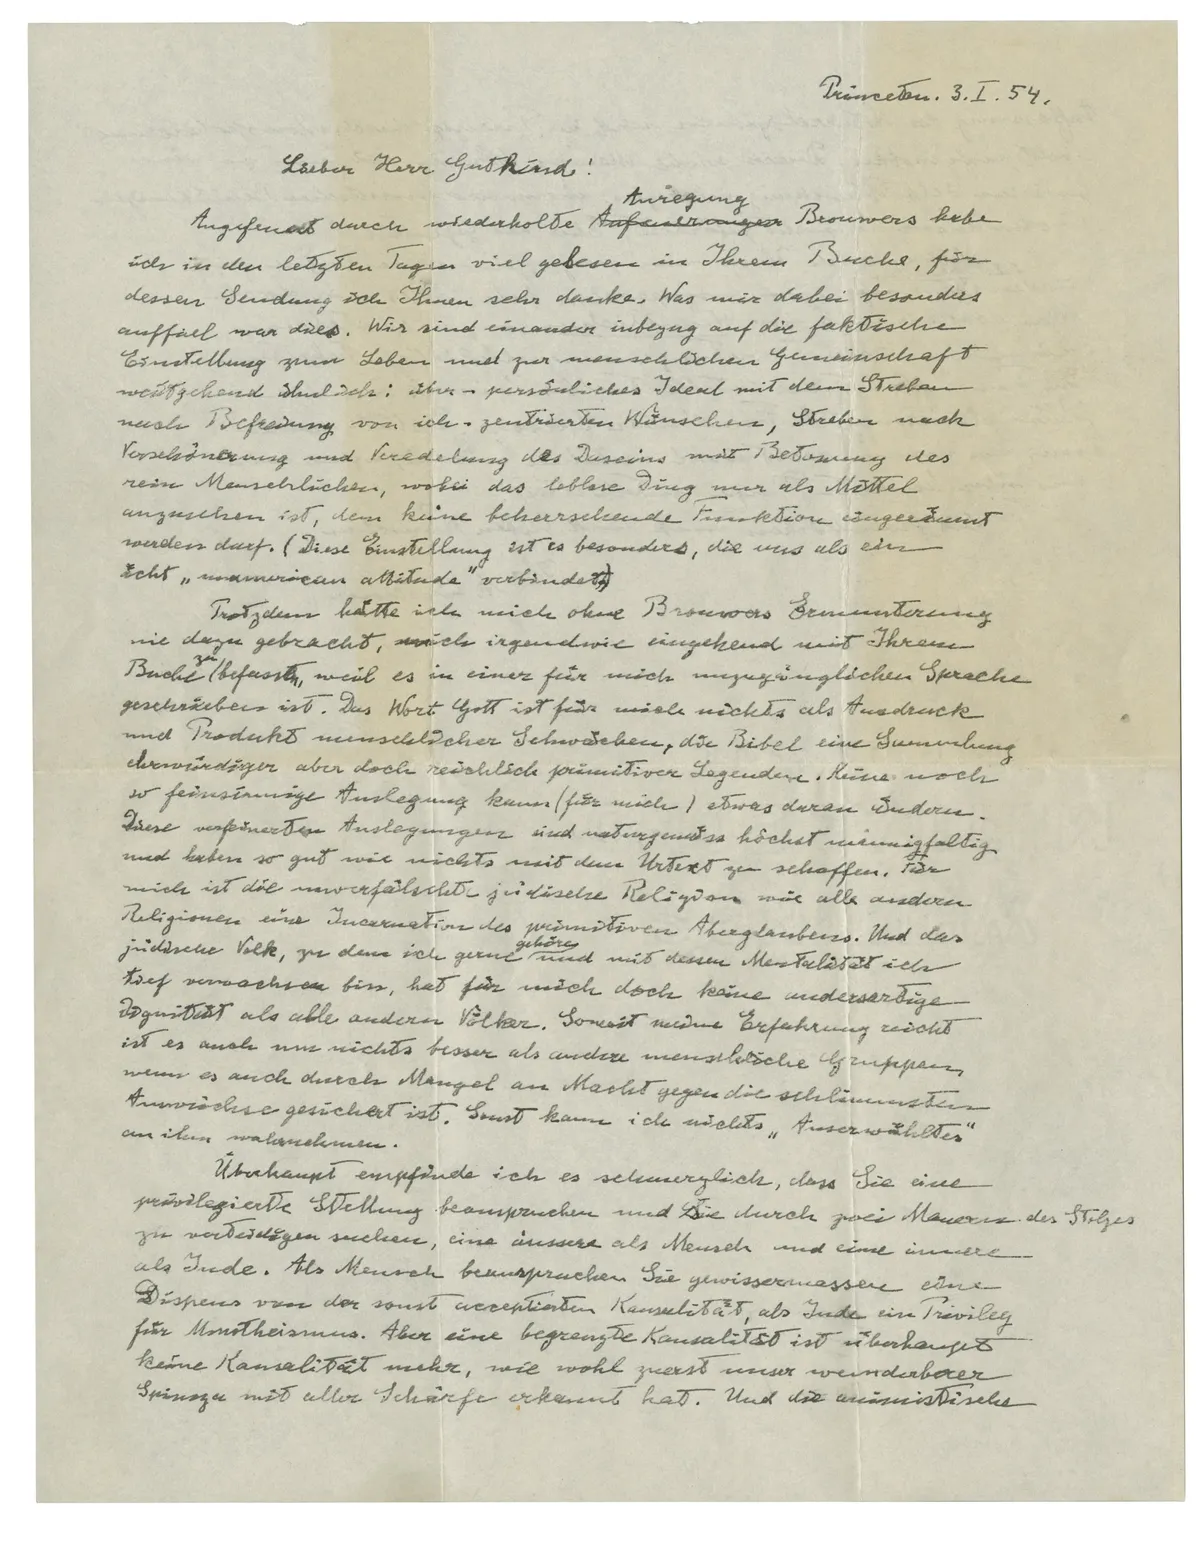 Princeton. 3. I. 54.
Lieber Herr Gutkind!
Angefeuert durch wiederholte Anregung Brouwers habe
ich in den letzten Tagen viel gelesen in Ihrem Buche, für
dessen Sendung ich Ihnen sehr danke. Was mir dabei besonders
auffiel war dies. Wir sind einander inbezug auf die faktische
Einstellung zum Leben und zur menschlichen Gemeinschaft
weitgehend ähnlich: über-persönliches Ideal mit dem Streben
nach Befreiung von ich-zentrierten Wünschen, Streben nach
Verschönerung und Veredelung des Daseins mit Betonung des
rein Menschlichen, wobei das leblose Ding nur als Mittel
anzusehen ist, dem keine beherrschende Funktion eingeräumt
werden darf. (Diese Einstellung ist es besonders, die uns als ein
echt „unamerican attitude" verbindet)
Trotzdem hätte ich mich ohne Brouwers Ermunterung
nie dazu gebracht, mich irgendwie eingehend mit Ihrem
Buche zu befassen, weil es in einer für mich unzugänglichen Sprache
geschrieben ist. Das Wort Gott ist für mich nichts als Ausdruck
und Produkt menschlicher Schwächen, die Bibel eine Sammlung
ehrwürdiger aber doch reichlich primitiver Legenden. Keine noch
so feinsinnige Auslegung kann (für mich) etwas daran ändern.
Diese verfeinerten Auslegungen sind naturgemäss höchst mannigfaltig
und haben so gut wie nichts mit dem Urtext zu schaffen. Für
mich ist die unverfälschte jüdische Religion wie alle andern
Religionen eine Incarnation des primitiven Aberglaubens. Und das
jüdische Volk, zu dem ich gerne gehöre und mit dessen Mentalität ich
tief verwachsen bin, hat für mich doch keine andersartige
Dignität als alle andern Völker. Soweit meine Erfahrung reicht
ist es auch um nichts besser als andere menschliche Gruppen,
wenn es auch durch Mangel an Macht gegen die schlimmsten
Auswüchse gesichert ist. Sonst kann ich nichts „Auserwähltes"
an ihm wahrnehmen.
Überhaupt empfinde ich es schmerzlich, dass Sie eine
privilegierte Stellung beanspruchen und Sie durch zwei Mauern des Stolzes
zu verteidigen suchen, eine äussere als Mensch und eine innere
als Jude. Als Mensch beanspruchen Sie gewissermassen eine
Dispens von der sonst acceptierten Kausalität, als Jude ein Privileg
für Monotheismus. Aber eine begrenzte Kausalität ist überhaupt
keine Kausalität mehr, wie wohl zuerst unser wunderbarer
Spinoza mit aller Schärfe erkannt hat. Und die animistische